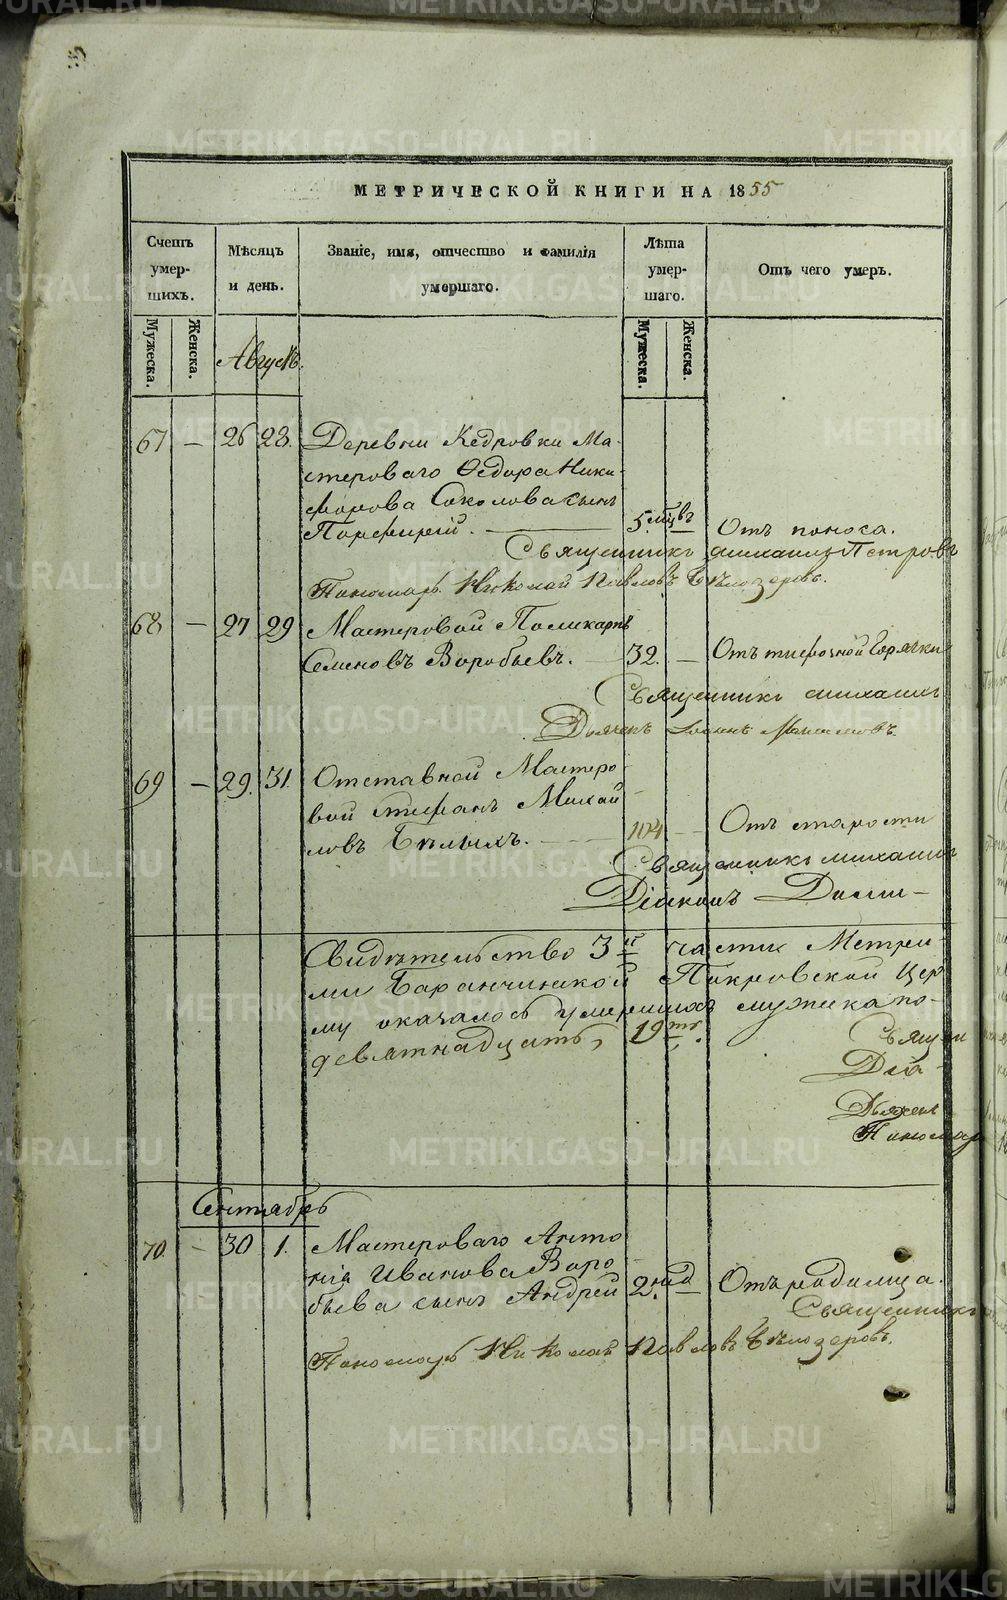 МЕТРИЧЕСКОЙ КНИГИ НА 1855
Счетъ умер-шихъ. Мѣсяцъ и день. Званіе, имя, отчество и фамилія умершаго. Лѣта умер-шаго. Отъ чего умеръ.
Мужеска. Женска. Мужеска. Женска.
Августъ.
67 — 26 28. Деревни Кедровки Ма-
стероваго Ѳедора Ники-
форова Соколова сынъ
Порфирій. — 5 мцвъ — Отъ поноса.
Священникъ Михаилъ Петровъ
Пономарь Николай Павловъ Бѣлозеровъ.
68 — 27 29 Мастеровой Поликарпъ
Семеновъ Воробьевъ. — 32. — Отъ тифочной Горячки
Священникъ Михаилъ
Дьячекъ Іоаннъ
69 — 29. 31. Отставной Мастеро-
вой Стефанъ Михай-
ловъ Бѣлыхъ. — 104 — Отъ старости
Священникъ Михаилъ
Діаконъ Дими-
Свидѣтельство 3й части Метри-
ми Баранчинской Покровской Цер
му оказалось умершихъ мужеска по-
девятнадцать, 19ть.
Священ
Діа-
Дьячекъ
Пономарь
Сентябрь
70. — 30 1. Мастероваго Анто-
нія Иванова Воро-
бьева сынъ Андрей 2 нед — Отъ родимца.
Священникъ
Пономарь Николай Павловъ Бѣлозеровъ.
METRIKI.GASO-URAL.RU